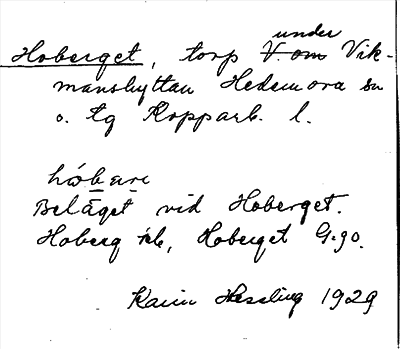 under
Hoberget, torp V. om Vik-
manshyttan Hedemora sn
o. tg Kopparb. l.
Beläget vid Hoberget.
Hoberg tk, Hoberget G.go.
Karin Hessling 1929